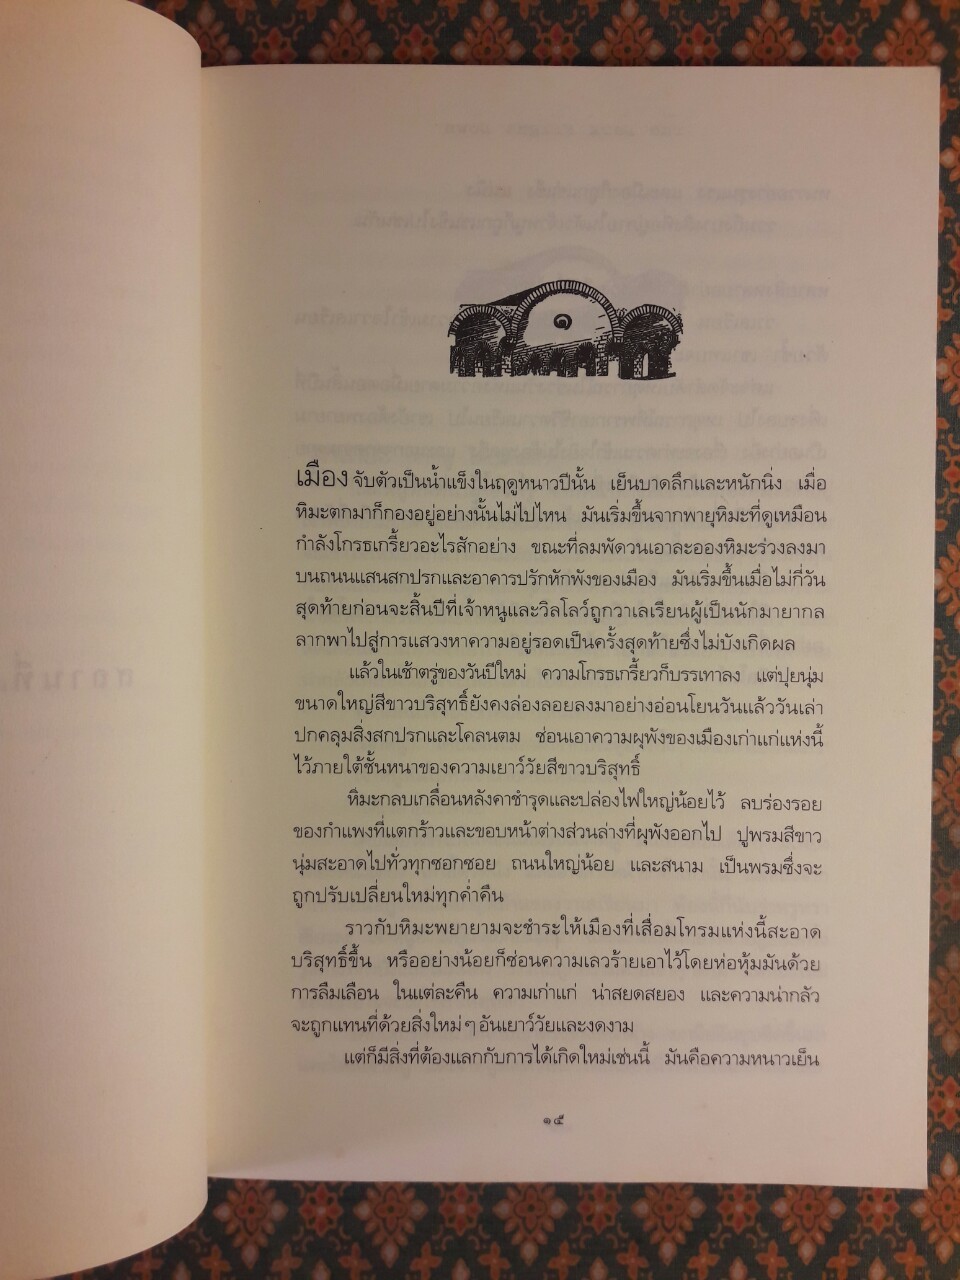 ๑
เมือง จับตัวเป็นน้ำแข็งในฤดูหนาวปีนั้น เย็นบาดลึกและหนักนิ่ง เมื่อ
หิมะตกมาก็กองอยู่อย่างนั้นไม่ไปไหน มันเริ่มขึ้นจากพายุหิมะที่ดูเหมือน
กำลังโกรธเกรี้ยวอะไรสักอย่าง ขณะที่ลมพัดวนเอาละอองหิมะร่วงลงมา
บนถนนแสนสกปรกและอาคารปรักหักพังของเมือง มันเริ่มขึ้นเมื่อไม่กี่วัน
สุดท้ายก่อนจะสิ้นปีที่เจ้าหนูและวิลโลว์ถูกวาเลเรียนผู้เป็นนักมายากล
ลากพาไปสู่การแสวงหาความอยู่รอดเป็นครั้งสุดท้ายซึ่งไม่บังเกิดผล
แล้วในเช้าตรู่ของวันปีใหม่ ความโกรธเกรี้ยวก็บรรเทาลง แต่ปุยนุ่ม
ขนาดใหญ่สีขาวบริสุทธิ์ยังคงล่องลอยลงมาอย่างอ่อนโยนวันแล้ววันเล่า
ปกคลุมสิ่งสกปรกและโคลนตม ซ่อนเอาความผุพังของเมืองเก่าแก่แห่งนี้
ไว้ภายใต้ชั้นหนาของความเยาว์วัยสีขาวบริสุทธิ์
หิมะกลบเกลื่อนหลังคาชำรุดและปล่องไฟใหญ่น้อยไว้ ลบร่องรอย
ของกำแพงที่แตกร้าวและขอบหน้าต่างส่วนล่างที่ผุพังออกไป ปูพรมสีขาว
นุ่มสะอาดไปทั่วทุกซอกซอย ถนนใหญ่น้อย และสนาม เป็นพรมซึ่งจะ
ถูกปรับเปลี่ยนใหม่ทุกค่ำคืน
ราวกับหิมะพยายามจะชำระให้เมืองที่เสื่อมโทรมแห่งนี้สะอาด
บริสุทธิ์ขึ้น หรืออย่างน้อยก็ซ่อนความเลวร้ายเอาไว้โดยห่อหุ้มมันด้วย
การลืมเลือน ในแต่ละคืน ความเก่าแก่ น่าสยดสยอง และความน่ากลัว
จะถูกแทนที่ด้วยสิ่งใหม่ๆ อันเยาว์วัยและงดงาม
แต่ก็มีสิ่งที่ต้องแลกกับการได้เกิดใหม่เช่นนี้ มันคือความหนาวเย็น
๑๕